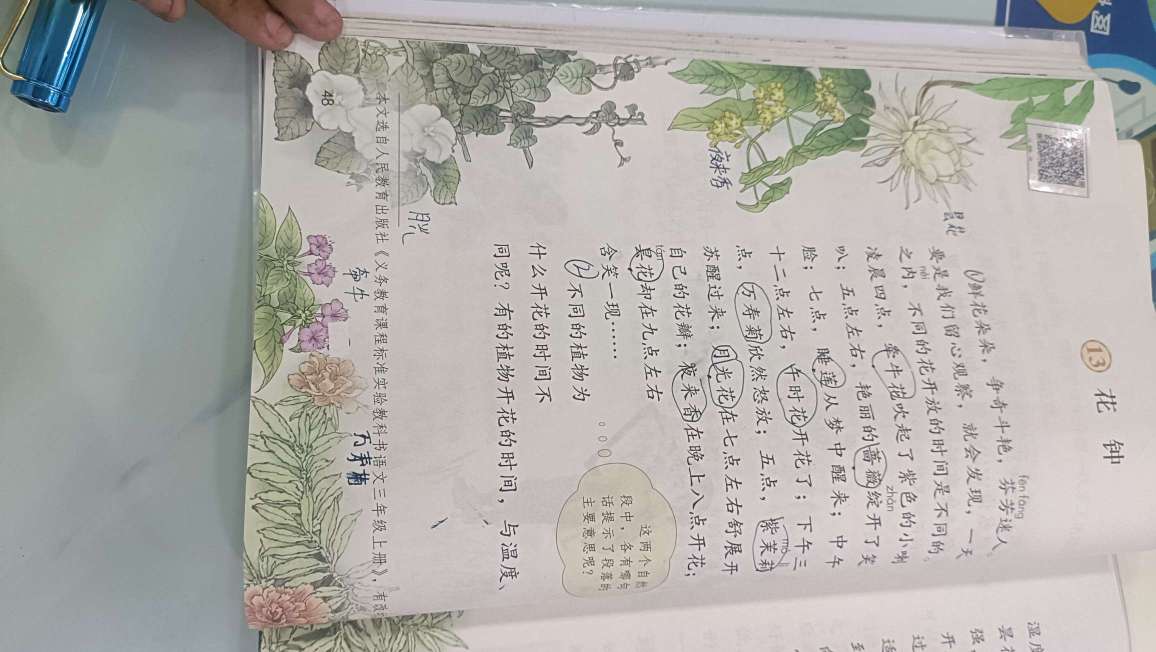 13 花钟
鲜花朵朵，争奇斗艳，芬芳迷人。
要是我们留心观察，就会发现，一天
之内，不同的花开放的时间是不同的。
凌晨四点，牵牛花吹起了紫色的小喇
叭；五点左右，艳丽的蔷薇绽开了笑
脸；七点，睡莲从梦中醒来；中午
十二点左右，午时花开花了；下午三
点，万寿菊欣然怒放；五点，紫茉莉
苏醒过来；月光花在七点左右舒展开
自己的花瓣；夜来香在晚上八点开花；
昙花却在九点左右
含笑一现……
不同的植物为
什么开花的时间不
同呢？有的植物开花的时间，与温度、
fēn fāng
nèi
zhàn
mò lì
tán
这两个自然
段中，各有哪句
话提示了段落的
主要意思呢？
本文选自人民教育出版社《义务教育课程标准实验教科书语文三年级上册》，有改
48
昙花
夜来香
牵牛
万寿菊
湿度
昙花
强，
开
过
适
到